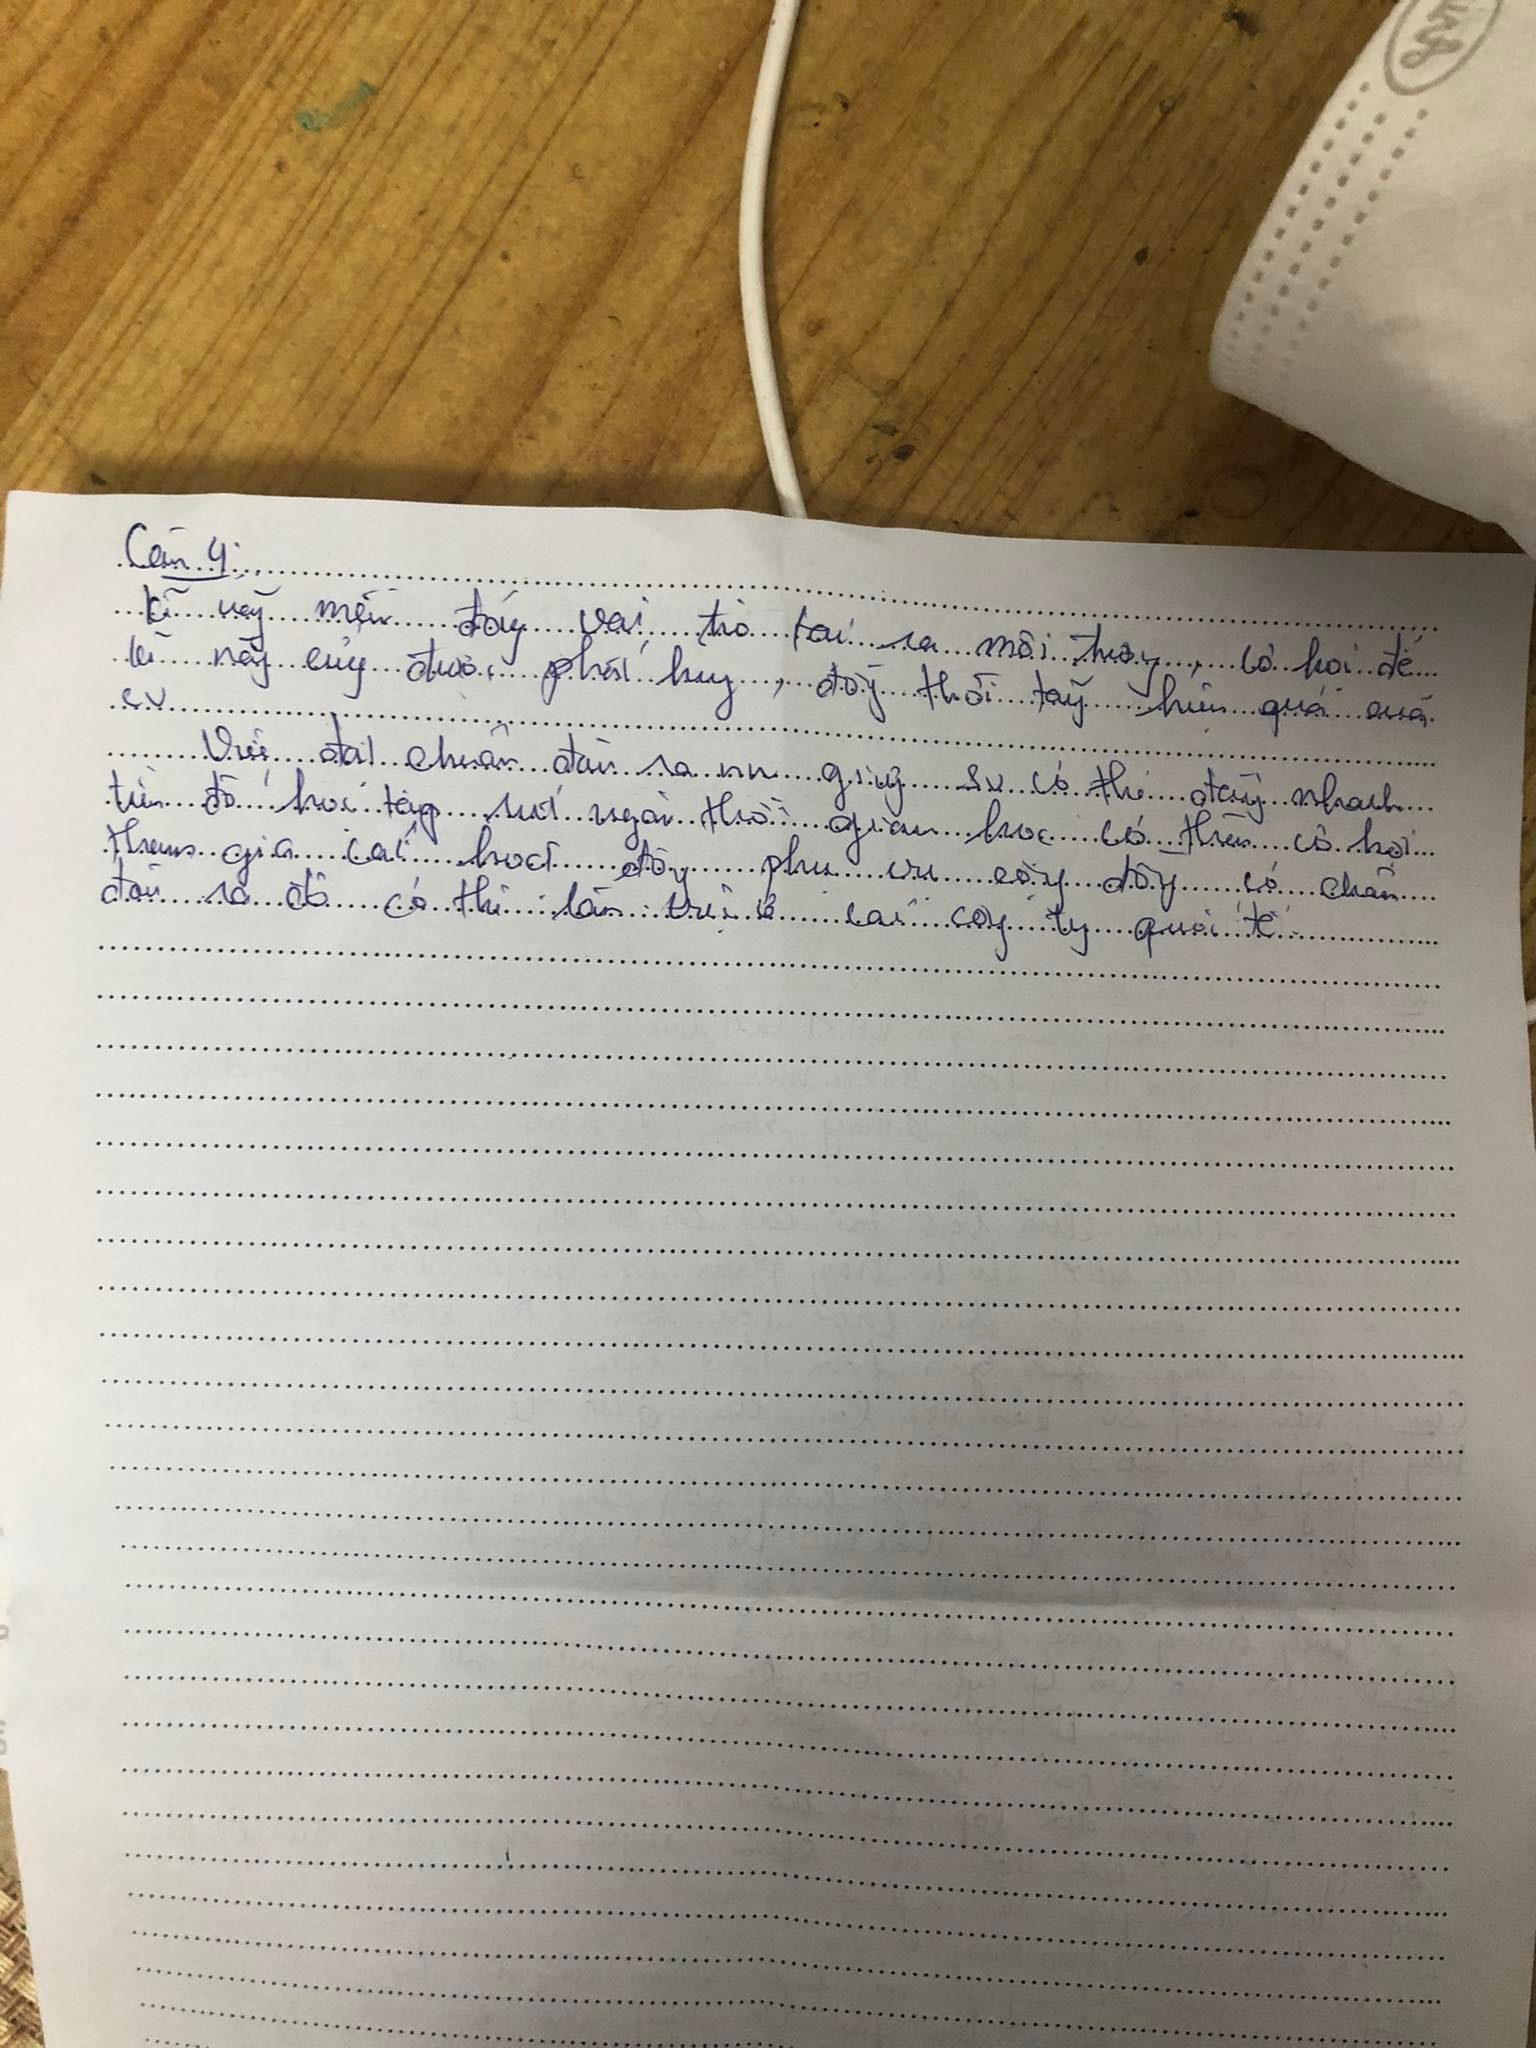 Câu 4:
kĩ năg mềm đóg vai trò tạo ra môi trườg, cơ hội để
kĩ năg cứg được phát huy, đồg thời tăg hiệu quả
cv
Việc đạt chuẩn đầu ra nn giúp sv có thể đẩy nhanh
tiến độ học tập rút ngắn thời gian học có thêm cơ hội
tham gia các hoạt độg phục vụ cộg đồg có chuẩn
đầu ra đó có thể làm việc ở các côg ty quốc tế